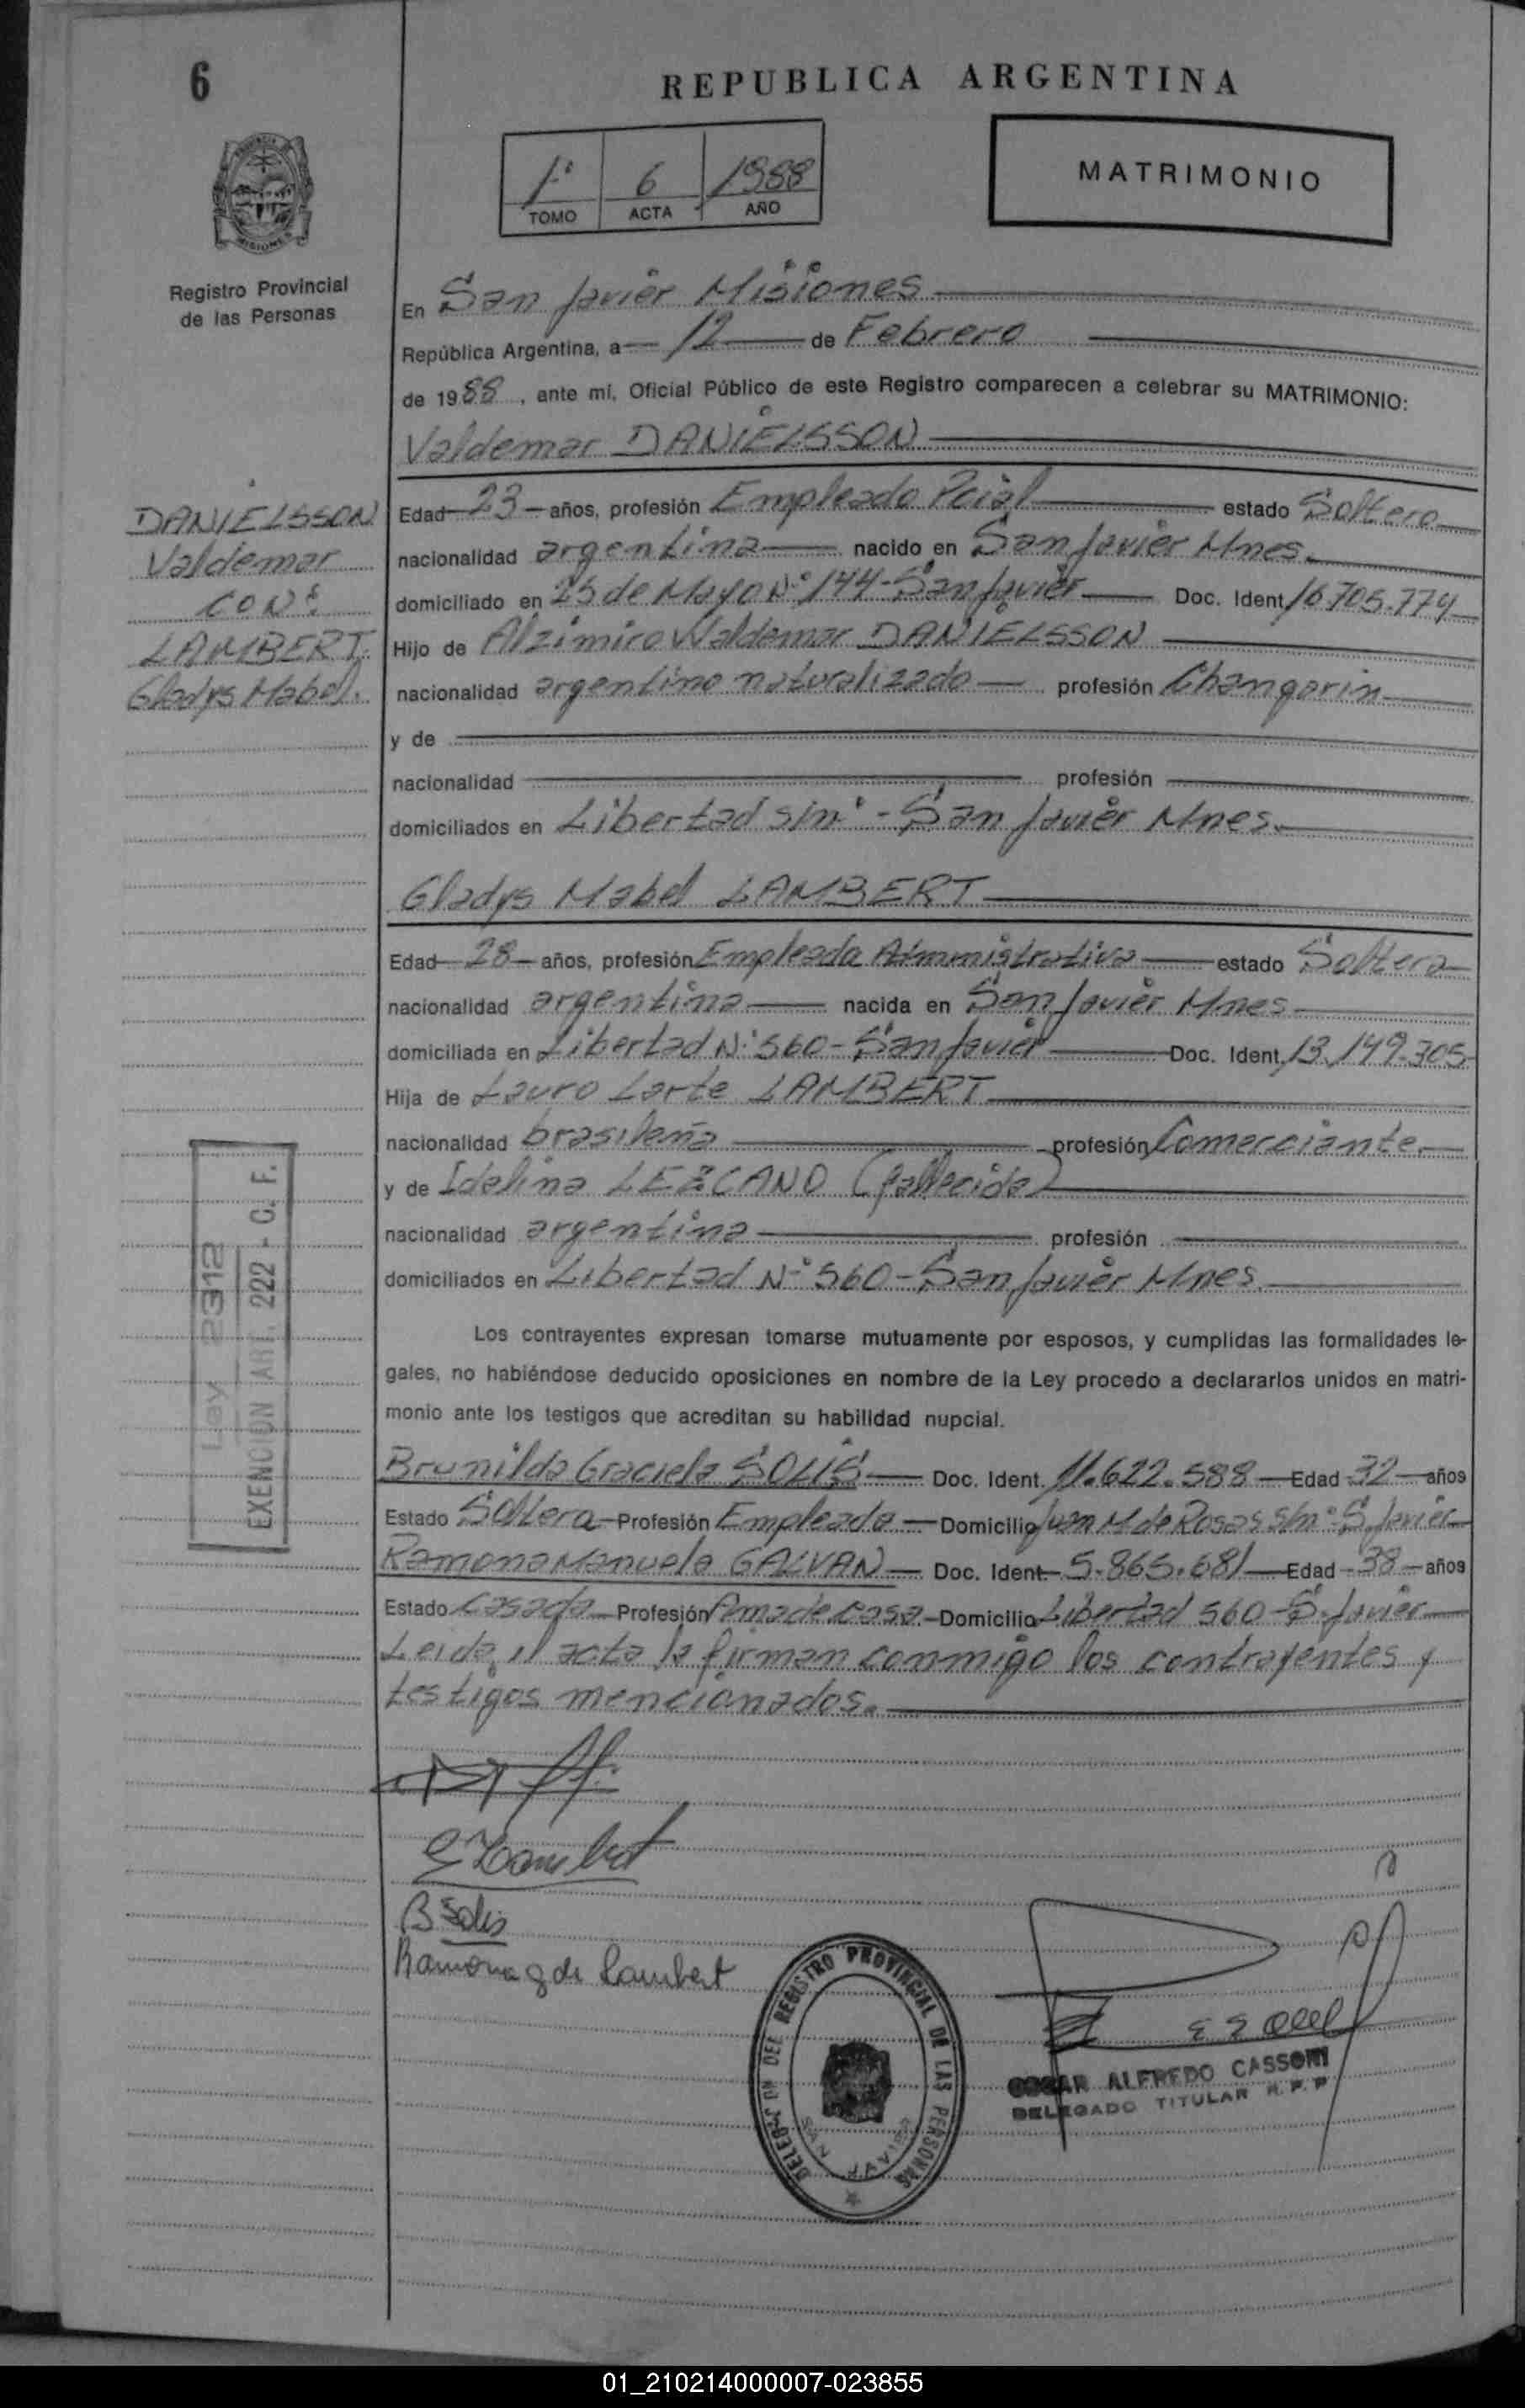 6
REPUBLICA ARGENTINA
1º 6 1988
TOMO ACTA AÑO
MATRIMONIO
PROVINCIA
MISIONES
Registro Provincial
de las Personas
En San Javier Misiones
República Argentina, a 12 de Febrero
de 1988, ante mí, Oficial Público de este Registro comparecen a celebrar su MATRIMONIO:
Valdemar DANIELSSON
DANIELSSON
Valdemar
CON:
LAMBERT
Gladys Mabel.
Edad 23 años, profesión Empleado Pcial estado Soltero
nacionalidad argentina nacido en San Javier Mnes.
domiciliado en 25 de Mayo Nº 144-San Javier Doc. Ident. 16.705.774
Hijo de Alzimiro Waldemar DANIELSSON
nacionalidad argentino naturalizado profesión Changarin
y de
nacionalidad profesión
domiciliados en Libertad s/nº - San Javier Mnes.
Gladys Mabel LAMBERT
Edad 28 años, profesión Empleada Administrativa estado Soltera
nacionalidad argentina nacida en San Javier Mnes
domiciliada en Libertad Nº 560- San Javier Doc. Ident. 13.149.305
Hija de Lauro Larte LAMBERT
nacionalidad brasileña profesión Comerciante
y de Idelina LEZCANO (fallecida)
nacionalidad argentina profesión
domiciliados en Libertad Nº 560- San Javier Mnes.
Ley 2312
EXENCION ART. 222 - C. F.
Los contrayentes expresan tomarse mutuamente por esposos, y cumplidas las formalidades le-
gales, no habiéndose deducido oposiciones en nombre de la Ley procedo a declararlos unidos en matri-
monio ante los testigos que acreditan su habilidad nupcial.
Brunilda Graciela SOLIS Doc. Ident. 11.622.588 Edad 32 años
Estado Soltera Profesión Empleada Domicilio Juan M de Rosas s/nº S. Javier
Ramona Manuela GALVAN Doc. Ident. 5.865.681 Edad 38 años
Estado Casada Profesión Ama de casa Domicilio Libertad 560-S. Javier
Leida el acta la firman conmigo los contrayentes y
testigos mencionados.
G Lambert
B Solis
Ramona g de Lambert
DELEGACION DEL REGISTRO PROVINCIAL DE LAS PERSONAS
SAN JAVIER
OSCAR ALFREDO CASSONI
DELEGADO TITULAR R.P.P
01_210214000007-023855